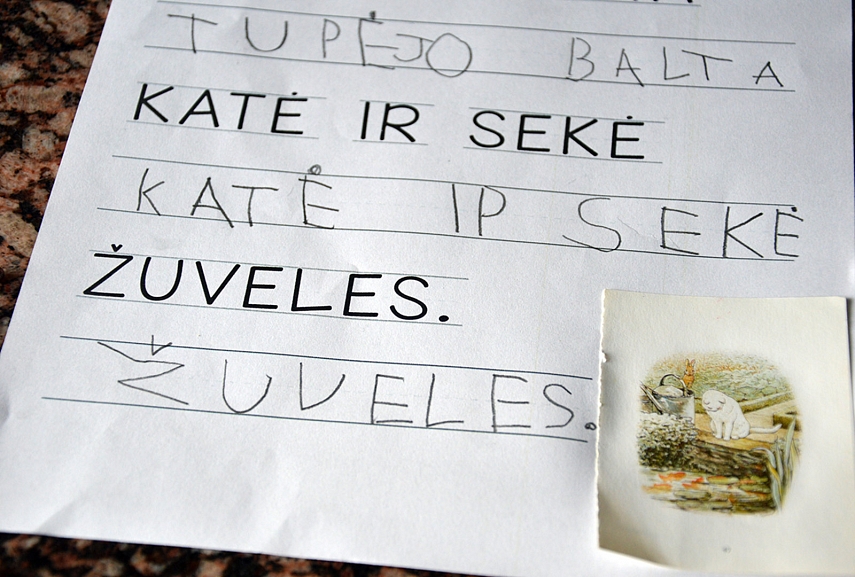 TUPĖJO BALTA
KATĖ IR SEKĖ
KATĖ IP SEKĖ
ŽUVELES.
ŽUVELES.